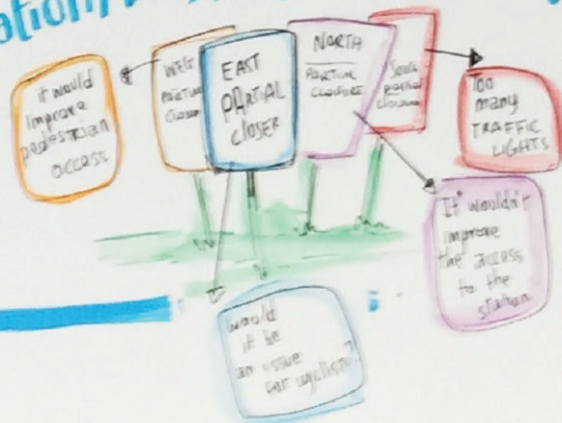 it would
improve
pedestrian
access
WEST
PARTIAL
Closer
EAST
PARTIAL
CLOSER
NORTH
PARTIAL
CLOSURE
South
partial
closure
Too
many
TRAFFIC
LIGHTS
It wouldn't
improve
the access
to the
station
would
it be
an issue
for cyclists?